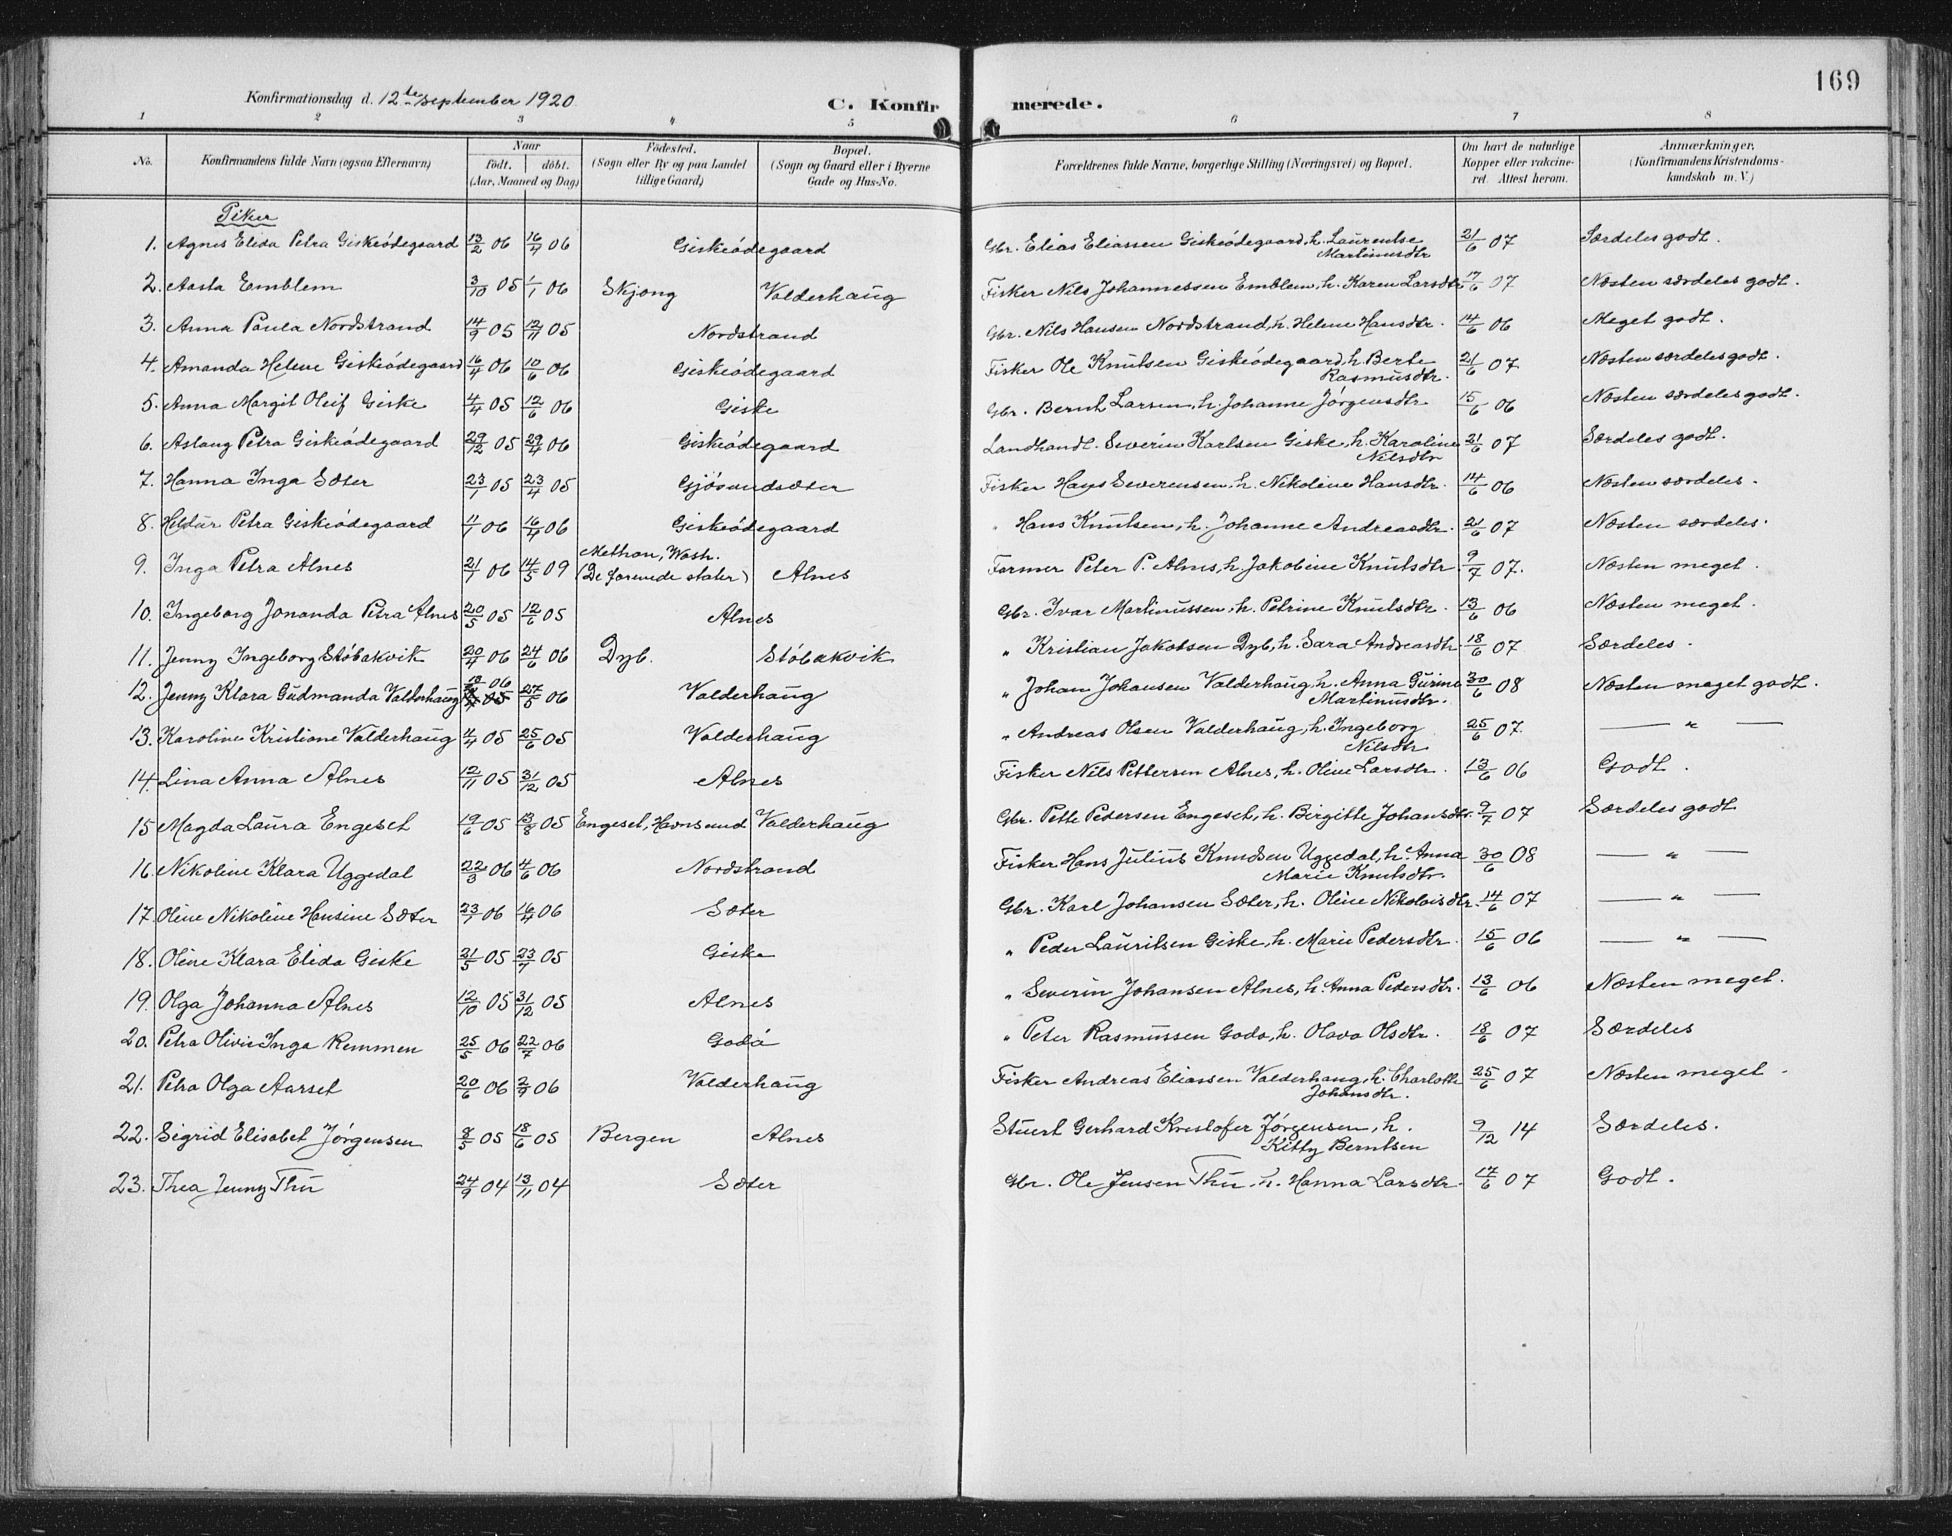 169
Konfirmationsdag d. 12te September 1920
C. Konfirmerede.
1 2 3 4 5 6 7 8
No. Konfirmandens fulde Navn (ogsaa Efternavn) Naar født. døbt. (Aar, Maaned og Dag) Fødested. (Sogn eller By og paa Landet tillige Gaard) Bopæl. (Sogn og Gaard eller i Byerne Gade og Hus-No. Forældrenes fulde Navne, borgerlige Stilling (Næringsvei) og Bopæl. Om havt de naturlige Kopper eller vakcineret. Attest herom. Anmærkninger. (Konfirmandens Kristendomskundskab m. V.)
Piker
1. Agnes Elida Petra Giskeødegaard 13/2 06 16/4 06 Giskeødegaard Gbr. Elias Eliassen Giskeødegaard, h. Laurentse Martinusdtr 21/6 07 Særdeles godt.
2. Aasta Emblem 3/10 05 1/1 06 Skjong Valderhaug Fisker Nils Johannessen Emblem, h. Karen Larsdtr 17/6 07 Næsten særdeles godt.
3. Anna Paula Nordstrand 14/9 05 12/11 05 Nordstrand Gbr. Nils Hansen Nordstrand, h. Helene Hansdtr. 14/6 06 Meget godt.
4. Amanda Helene Giskeødegaard 16/4 06 10/6 06 Giskeødegaard Fisker Ole Knutsen Giskeødegaard, h. Berte Rasmusdtr. 21/6 07 Næsten særdeles godt.
5. Anna Margit Oleif Giske 4/4 05 12/6 06 Giske Gbr. Bernt Larsen, h. Johanne Jørgensdtr 15/6 06 Næsten særdeles godt.
6. Aslaug Petra Giskeødegaard 29/12 05 29/4 06 Giskeødegaard Landhandl. Severin Karlsen Giske, h. Karoline Nilsdtr 21/6 07 Særdeles godt.
7. Hanna Inga Sæter 23/1 05 23/4 05 Gjøsundsæter Fisker Hans Severensen, h. Nikoline Hansdtr. 14/6 06 Næsten særdeles.
8. Heldur Petra Giskeødegaard 11/1 06 16/4 06 Giskeødegaard " Hans Knutsen, h. Johanne Andreasdtr. 21/6 07 Næsten særdeles.
9. Inga Petra Alnes 21/1 06 14/5 09 Methan, Wash. (De forenede stater) Alnes Farmer Peter P. Alnes, h. Jakobine Knutsdtr. 9/7 07. Næsten meget.
10. Ingeborg Jonanda Petra Alnes 20/5 05 12/6 05 Alnes Gbr. Ivar Martinussen, h. Petrine Knutsdtr. 13/6 06 Næsten meget.
11. Jenny Ingeborg Støbakvik 20/4 06 24/6 06 Dyb. Støbakvik " Kristian Jakobsen Dyb, h. Sara Andreasdtr 18/6 07 Særdeles.
12. Jenny Klara Gudmanda Valderhaug 06 05 27/5 06 Valderhaug " Johan Johansen Valderhaug, h. Anna Gurine Martinusdtr. 30/6 08 Næsten meget godt.
13. Karoline Kristiane Valderhaug 4/4 05 25/6 05 Valderhaug " Andreas Olsen Valderhaug, h. Ingeborg Nilsdtr 25/6 07. — " —
14. Lina Anna Alnes 12/11 05 31/12 05 Alnes Fisker Nils Pettersen Alnes, h. Oline Larsdtr. 13/6 06 Godt.
15 Magda Laura Engeset 19/6 05 13/8 05 Engeset, Havnsund Valderhaug Gbr. Pette Pedersen Engeset, h. Birgitte Johansdtr. 9/7 07 Særdeles godt
16. Nikoline Klara Uggedal 22/3 06 4/6 06 Nordstrand Fisker Hans Julius Knudsen Uggedal, h. Anna Marie Knutsdtr. 30/6 08 — " —
17 Oline Nikoline Hansine Sæter 23/1 06 16/4 06 Sæter Gbr. Karl Johansen Sæter, h. Oline Nikolaisdtr. 14/6 07 — " —
18. Oline Klara Elida Giske 21/5 05 23/7 05 Giske " Peder Lauritsen Giske, h. Marie Pedersdtr. 15/6 06 — " —
19. Olga Johanna Alnes 12/10 05 31/12 05 Alnes " Severin Johansen Alnes, h. Anna Pedersdtr. 13/6 06 Næsten meget.
20. Petra Olivie Inga Remmen 25/5 06 22/7 06 Godø " Peter Rasmussen Godø, h. Olava Olsdtr. 18/6 07 Særdeles
21. Petra Olga Aarset 20/6 06 2/9 06 Valderhaug Fisker Andreas Eliassen Valderhaug, h. Charlotte Johansdtr. 25/6 07 Næsten meget.
22. Sigrid Elisabet Jørgensen 8/5 05 18/6 05 Bergen Alnes Stuert Gerhard Kristofer Jørgensen, h. Kitty Berntsen 9/12 14 Særdeles.
23. Thea Jenny Thu 24/9 04 13/11 04 Sæter Gbr. Ole Jensen Thu, h. Hanna Larsdtr. 17/6 07 Godt.